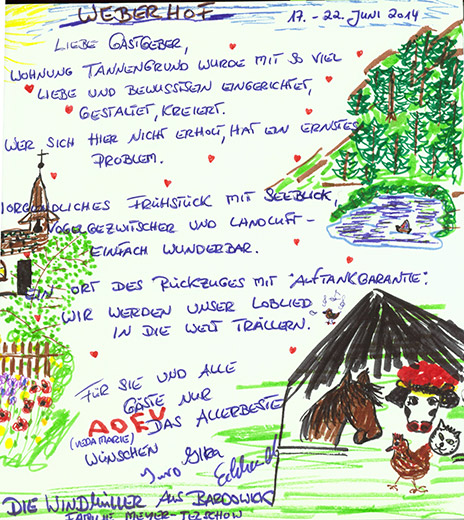 WEBERHOF
17. - 22. JUNI 2014
LIEBE GASTGEBER,
WOHNUNG TANNENGRUND WURDE MIT SO VIEL
LIEBE UND BEWUSSTSEIN EINGERICHTET,
GESTALTET, KREIERT.
WER SICH HIER NICHT ERHOLT, HAT EIN ERNSTES
PROBLEM.
MORGENDLICHES FRÜHSTÜCK MIT SEEBLICK,
VOGELGEZWITSCHER UND LANDLUFT -
EINFACH WUNDERBAR.
EIN ORT DES RÜCKZUGES MIT "AUFTANKGARANTIE".
WIR WERDEN UNSER LOBLIED
IN DIE WELT TRÄLLERN.
FÜR SIE UND ALLE
GÄSTE NUR
DAS ALLERBESTE
(VEDA MARIE)
WÜNSCHEN
DIE WINDMÜLLER AUS BARDOWICK
FAMILIE MEYER-